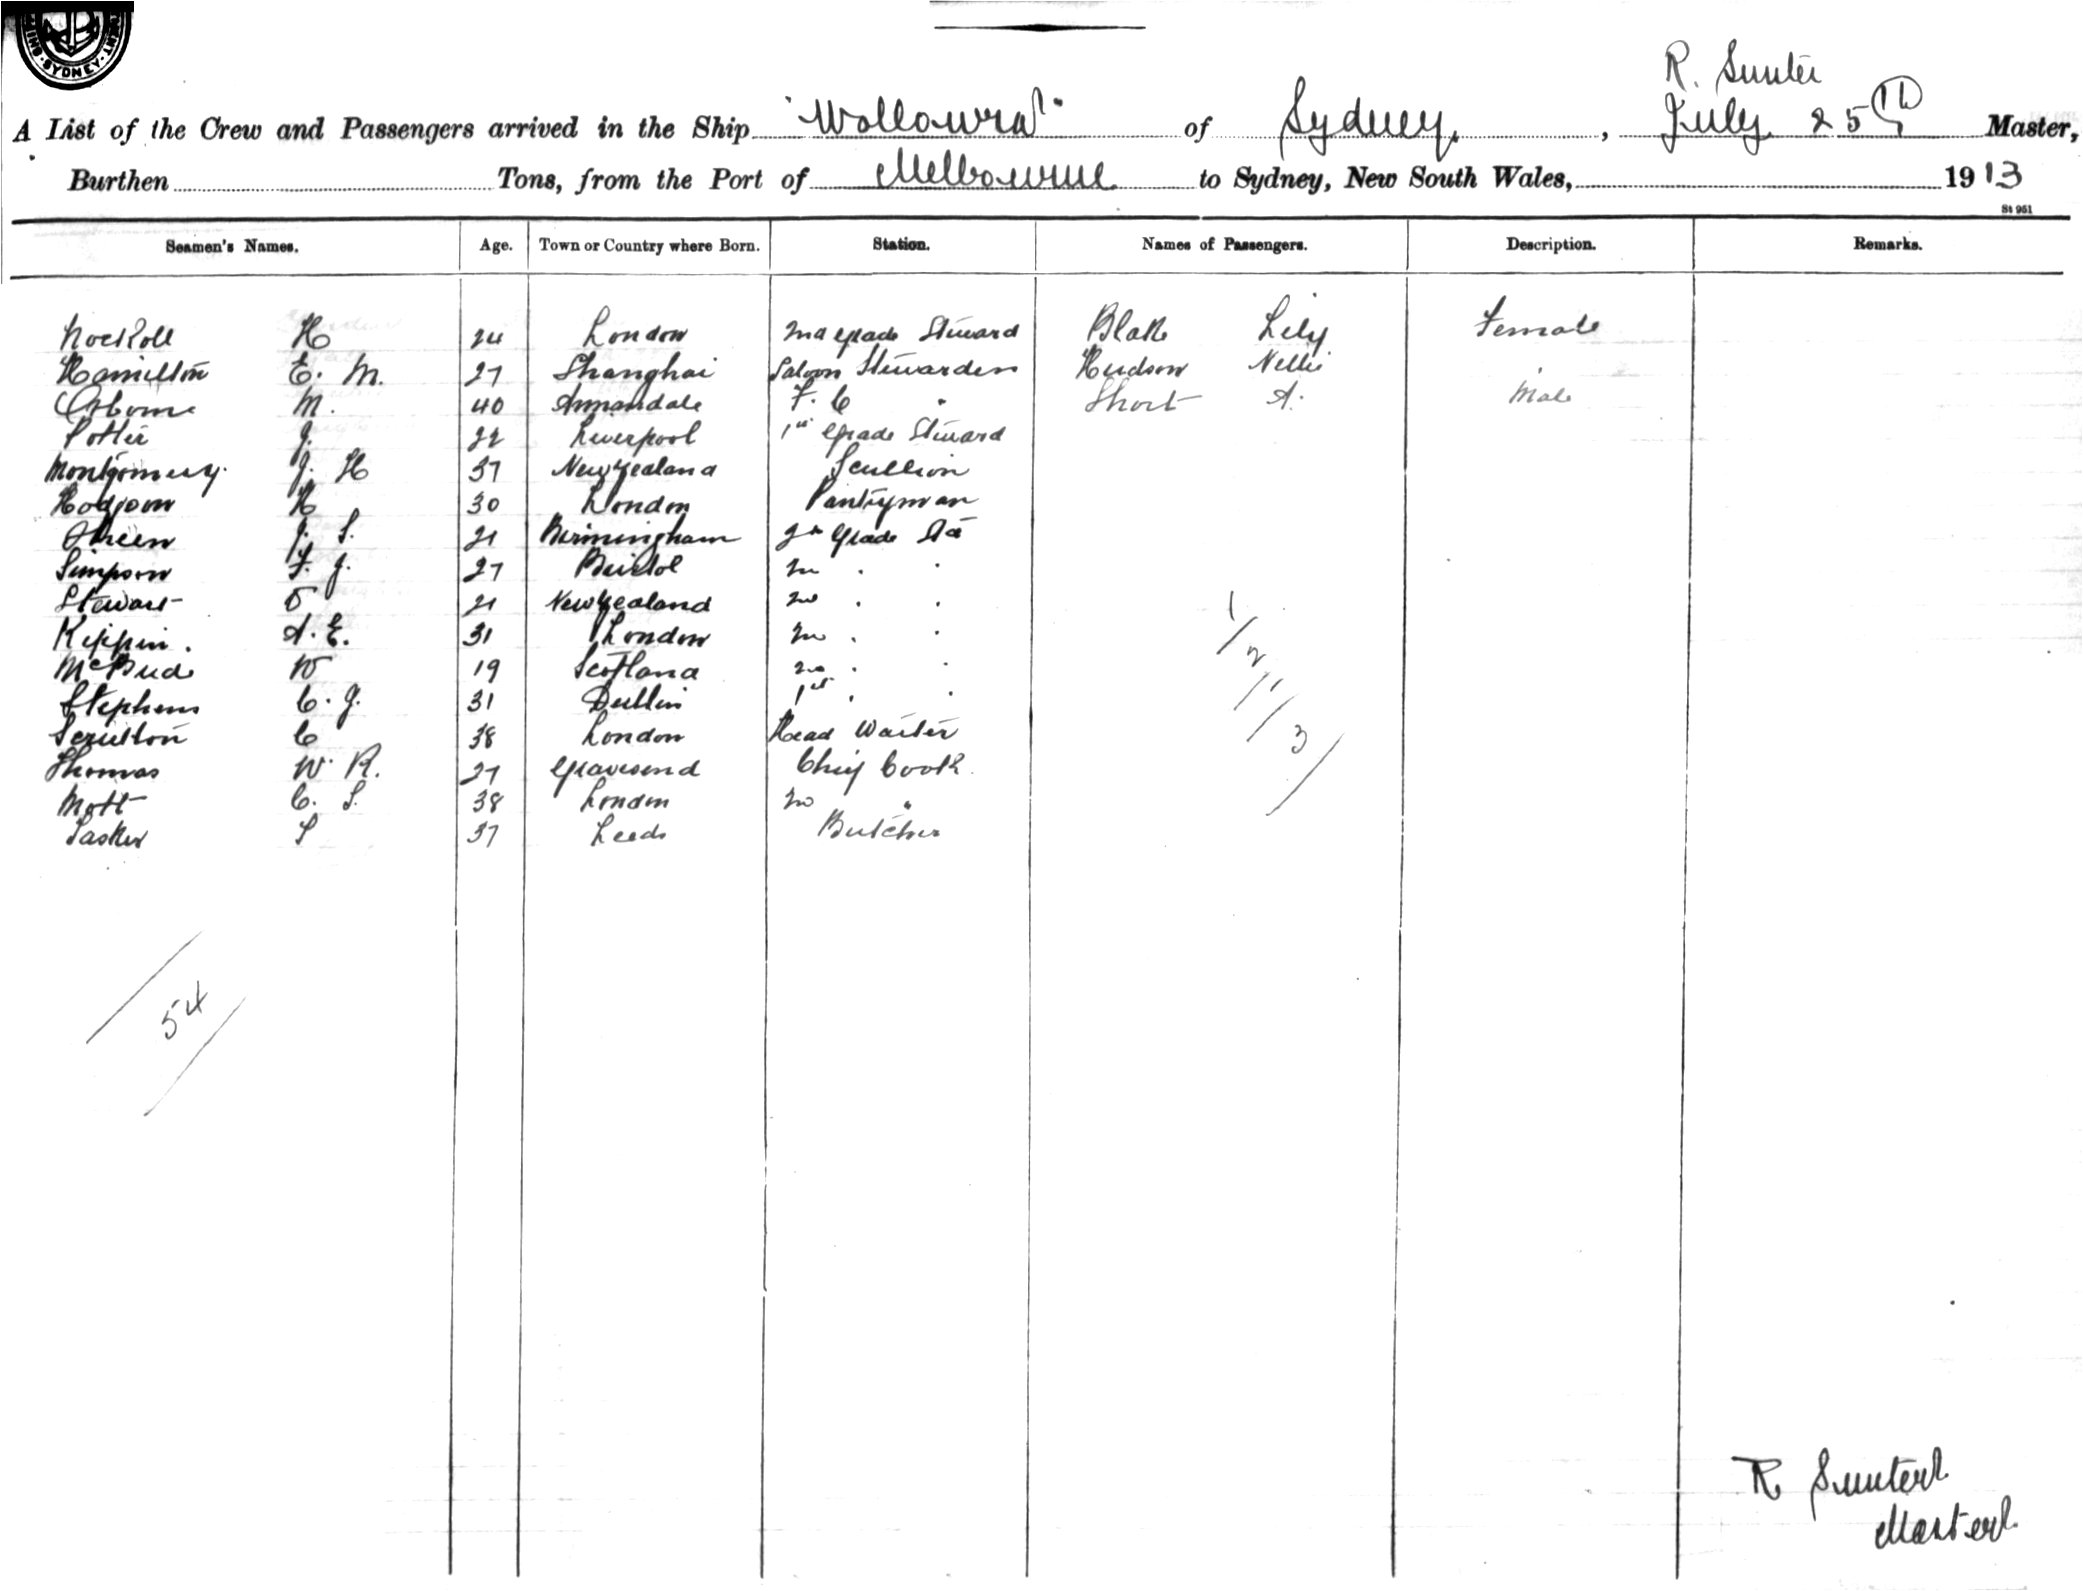 SYDNEY
R. Sunter
A List of the Crew and Passengers arrived in the Ship "Wollowra" of Sydney, July 25th Master,
Burthen Tons, from the Port of Melbourne to Sydney, New South Wales, 1913
St 951
Seamen's Names. Age. Town or Country where Born. Station. Names of Passengers. Description. Remarks.
H 24 London 2nd Grade Steward Blake Lily Female
Hamilton E. M. 27 Shanghai Saloon Stewardess Hudson Nellie "
Osborne M. 40 Annandale F. C " Short A. Male
Potter J. 22 Liverpool 1st Grade Steward
Montgomery. J. H 37 New Zealand Scullion
Hodgson H 30 London Pantryman
Green J. S. 21 Birmingham 2nd Grade Std
Simpson F. J. 27 Bristol 2nd " "
Stewart 21 New Zealand 2nd " "
Kippin. A. E. 31 London 2nd " "
McBride W 19 Scotland 2nd " "
Stephens C. J. 31 Dublin 1st " "
Scrutton C 38 London Head Waiter
Thomas W. R. 27 Gravesend Chief Cook
Mott C. S. 38 London 2nd "
Tasker S 37 Leeds Butcher
1/2/1/3/
/54/
R Sunter
Master